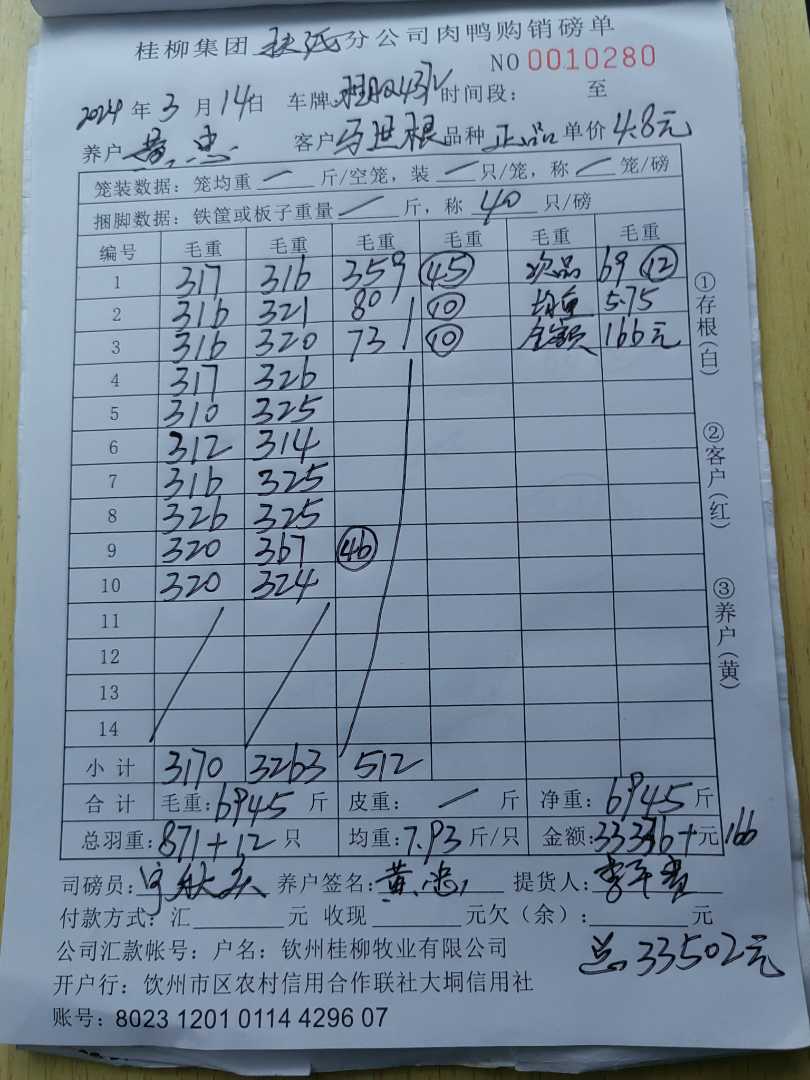 桂柳集团 分公司肉鸭购销磅单
NO 0010280
2024年3月14日 车牌: 时间段: 至
养户 黄忠 客户 马世根 品种 正品 单价 4.8元
笼装数据: 笼均重 一 斤/空笼, 装 一 只/笼, 称 一 笼/磅
捆脚数据: 铁筐或板子重量 一 斤, 称 40 只/磅
编号 毛重 毛重 毛重 毛重 毛重 毛重
1 317 316 359 45 次品 69 12
2 316 321 80 10 均重 5.75
3 316 320 73 10 金额 166元
4 317 326
5 310 325
6 312 314
7 316 325
8 326 325
9 320 367 46
10 320 324
11
12
13
14
小计 3170 3263 512
合计 毛重: 6945 斤 皮重: 一 斤 净重: 6945 斤
总羽重: 871+12 只 均重: 7.93 斤/只 金额: 33336+ 元 166
司磅员: 养户签名: 黄忠 提货人:
付款方式: 汇 元 收现 元欠(余): 元
公司汇款帐号: 户名: 钦州桂柳牧业有限公司
总 33502元
开户行: 钦州市区农村信用合作联社大垌信用社
账号: 8023 1201 0114 4296 07
①存根(白)
②客户(红)
③养户(黄)